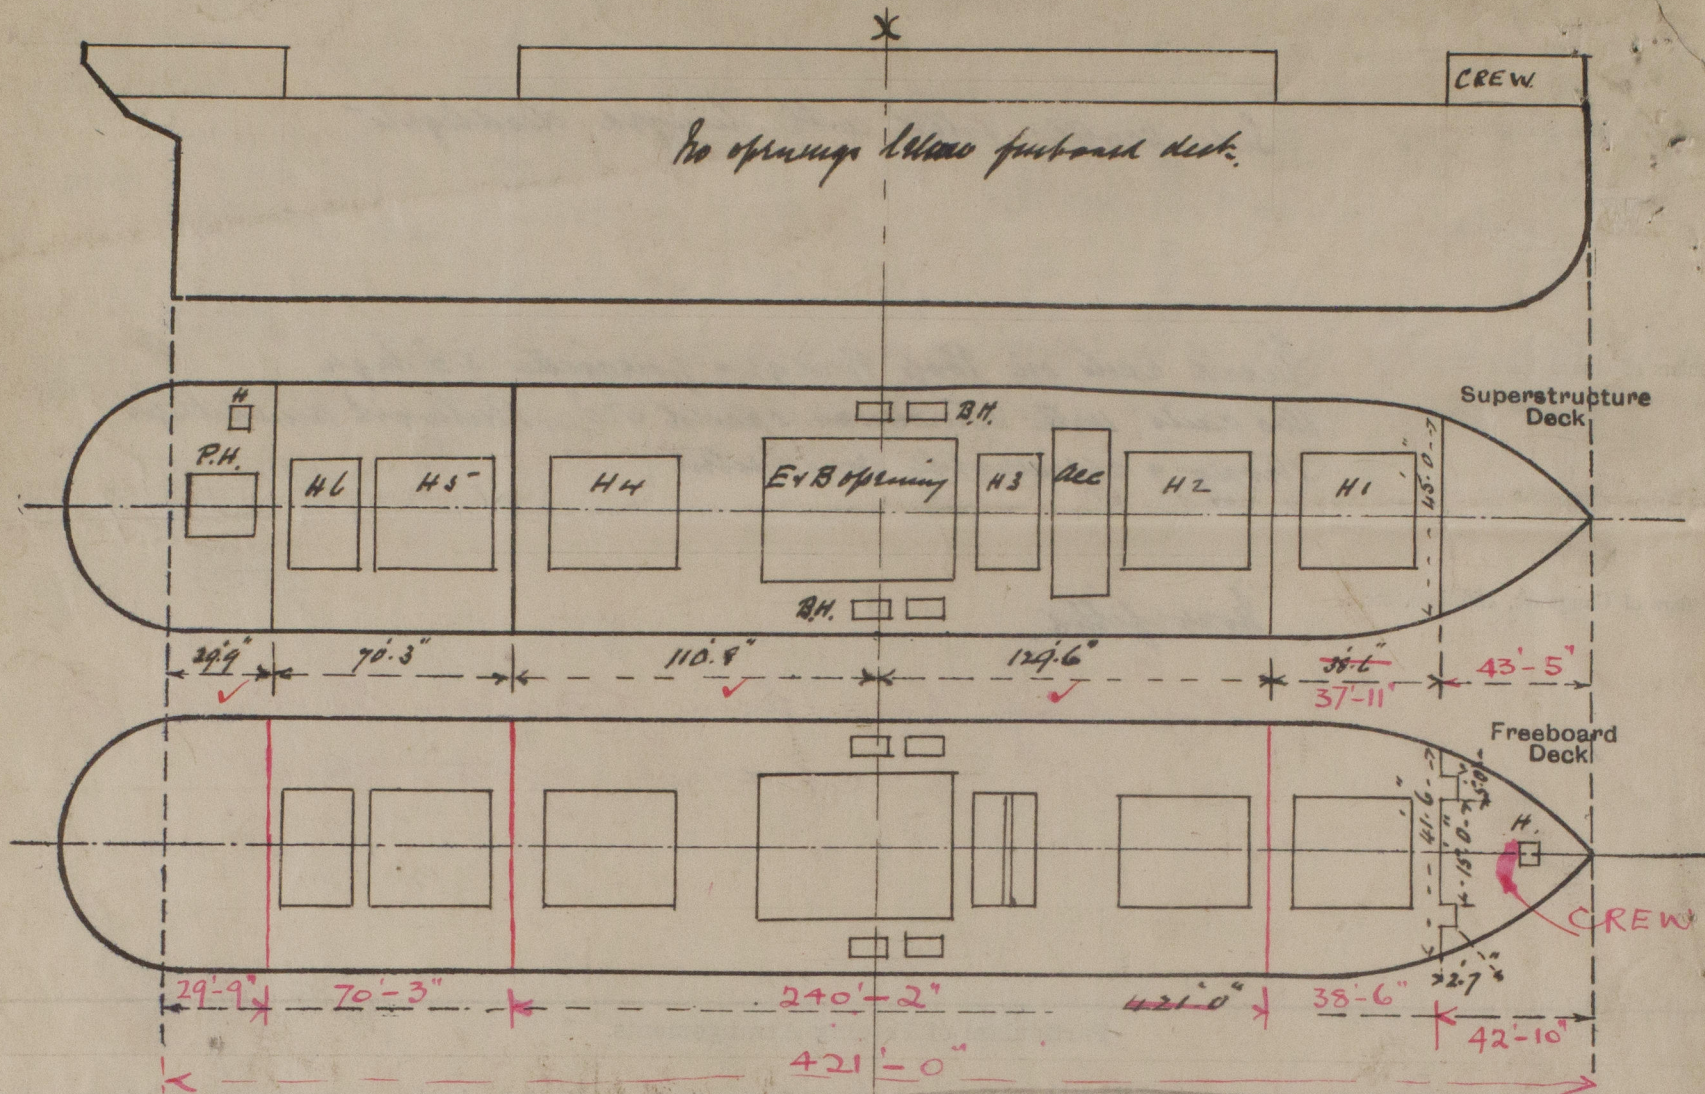 CREW.
No openings below freeboard deck.
Superstructure
Deck
H
P.H.
H6
H5
H4
E & B opening
H3
acc
H2
H1
45'.0"
B.H.
B.H.
29'.9"
70'.3"
110'.8"
129'.6"
38'.6"
37'-11"
43'-5"
Freeboard
Deck
41'.6"
15'.0"
H.
CREW
2'.7"
29'-9"
70'-3"
240'-2"
421'0"
38'-6"
42'-10"
421'-0"